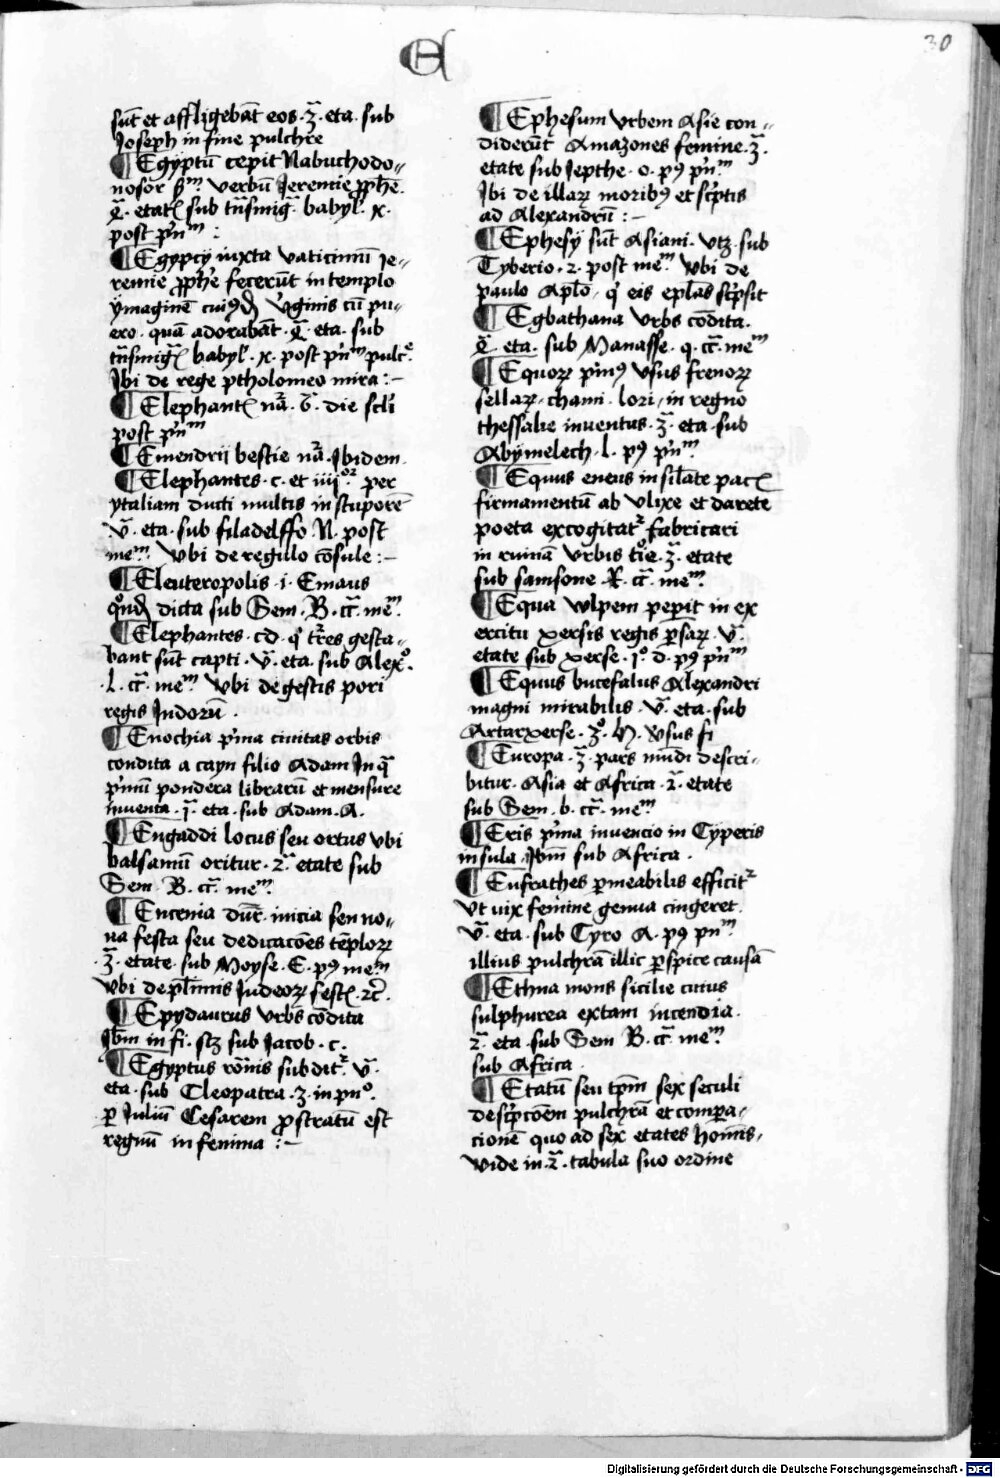 E
30
sūt et affligebāt eos · 3ͣ · eta · sub
Joseph in fine pulchre
¶ Egyptū cepit Nabuchodo„
nosor ẜmͫ verbū Jeremie ꝓph̄e
etatꝭ sub tn̄smigͣ babyl · x ·
post pͥnͫ :
¶ Egypcy iuxta vaticiniū Je„
remie ꝓph̄e fecerūt in templo
ymaginē cuiꝰdā vͥginis cū pu„
ero · quā adorabāt · eta · sub
tn̄smigͣꝭ babyl · x · post pͥnͫ pulcͤ
Jbi de rege ptholomeo mira :–
¶ Elephantꝭ nͣ · 6ͣ · die scli
post pͥnͫ
¶ Emendrij bestie nͣ · Jbidem
¶ Elephantes · c · et iiijͦꝛ per
ytaliam ducti multis in stuporē
vͣ · eta · sub filadelffo · N · post
meͫ · Vbi de regillo cōsule :–
¶ Eleuteropolis · i · Emaus
qͦndā dicta sub Sem · B · cͣ · meͫ
¶ Elephantes · cd · qͥ tr̄es gesta„
bant sūt capti · vͣ · eta · sub Alexͦ ·
· l · cͣ · meͫ Vbi de gestis pori
regis Jndorū ·
¶ Enochia pͥma ciuitas orbis
condita a cayn filio Adam Jn qͣ
pͥmū pondera librarū et mensure
inuenta · 1ͣ · eta · sub Adam · A ·
¶ Engaddi locus seu ortus vbi
balsamū oritur · 2ͣ etate sub
Sem · B · cͣ · meͫ
¶ Encenia dūr · inicia seu no„
na festa seu dedicacōes tēploꝝ
· 3ͣ · etate · sub Moyse · E · pꝰ meͫ
Vbi de pl̄imis Judeoꝝ festꝭ · ⁊c̄ ·
¶ Epydaurus vrbs cōdita
Jbm̄ in fi · scꝫ sub Jacob · c ·
¶ Egyptus rōnis subditͬ · vͣ ·
eta · sub Cleopatra · 3 · in pnͦ ·
ꝑ Juliū Cesarem ꝓstratū est
regnū in femina :–
¶ Ephesum vrbem Asie con„
diderūt Amazones femine · 3ͣ ·
etate sub Jepthe · o · pꝰ pͥnͫ
Jbi de illaꝝ moribꝰ et scͥptis
ad Alexandrū :–
¶ Ephesij sūt Asiani · vtꝫ · sub
Tyberio · 2 · post meͫ Vbi de
paulo Aplo · qͥ eis epl̄as scͥpsit
¶ Egbathana vrbs cōdita ·
eta · sub Manasse · q · cͣ · meͫ
¶ Equoꝝ pͥmꝰ vsus frenoꝝ
sellaꝝ · chami · lori · in regno
thessalie inuentus · 3ͣ · eta · sub
Abymelech · l · pꝰ pͥnͫ
¶ Equus eneus in silate pacꝭ
firmamentū ab vlixe et darete
poeta excogitatͬ fabricari
in ruinā vrbis tͦie · 3ͣ · etate
sub samsone · R · cͣ · meͫ
¶ Equa wlpem pepit in ex
ercitu xersis regis ꝑsaꝝ · vͣ ·
etate sub xerse · 1ͦ · d · pꝰ pͥnͫ
¶ Equus bucefalus Alexandri
magni mirabilis · vͣ · eta · sub
Artarxerse · 3ͦ · h · Vsus fi
¶ Europa · 3ͣ · pars mūdi descri„
bitur · Asia et Africa · 2ͣ · etate
sub Sem · b · cͣ · meͫ
¶ Eris pͥma inuencio in Cyperis
insula · Jbm̄ sub Africa ·
¶ Eufrathes ꝑmeabilis efficitͬ
vt vix femine genua cingeret ·
vͣ · eta · sub Cyro · A · pꝰ pnͫ
illius pulchrā illic ꝑspice causā
¶ Ethna mons sicilie cuius
sulphurea extant incendia ·
2ͣ · eta · sub Sem · B · cͣ · meͫ
sub Africa
¶ Etatū seu tpm̄ sex seculi
descͥpcōem pulchrā et compa„
cionē quo ad sex etates homīs,
vide in · 2ͣ · tabula suo ordine
Digitalisierung gefördert durch die Deutsche Forschungsgemeinschaft - DFG